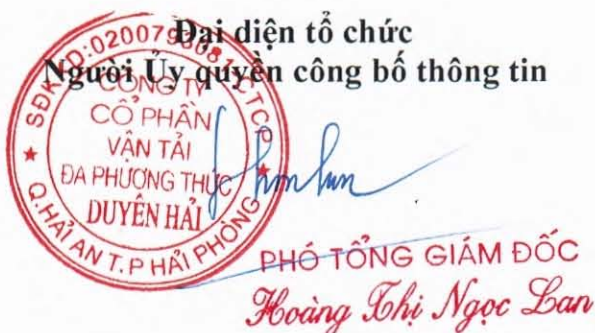 Đại diện tổ chức
Người Ủy quyền công bố thông tin
CÔNG TY
CỔ PHẦN
VẬN TẢI
ĐA PHƯƠNG THỨC
DUYÊN HẢI
★ Q.HẢI AN T.P HẢI PHÒNG ★
PHÓ TỔNG GIÁM ĐỐC
Hoàng Thị Ngọc Lan